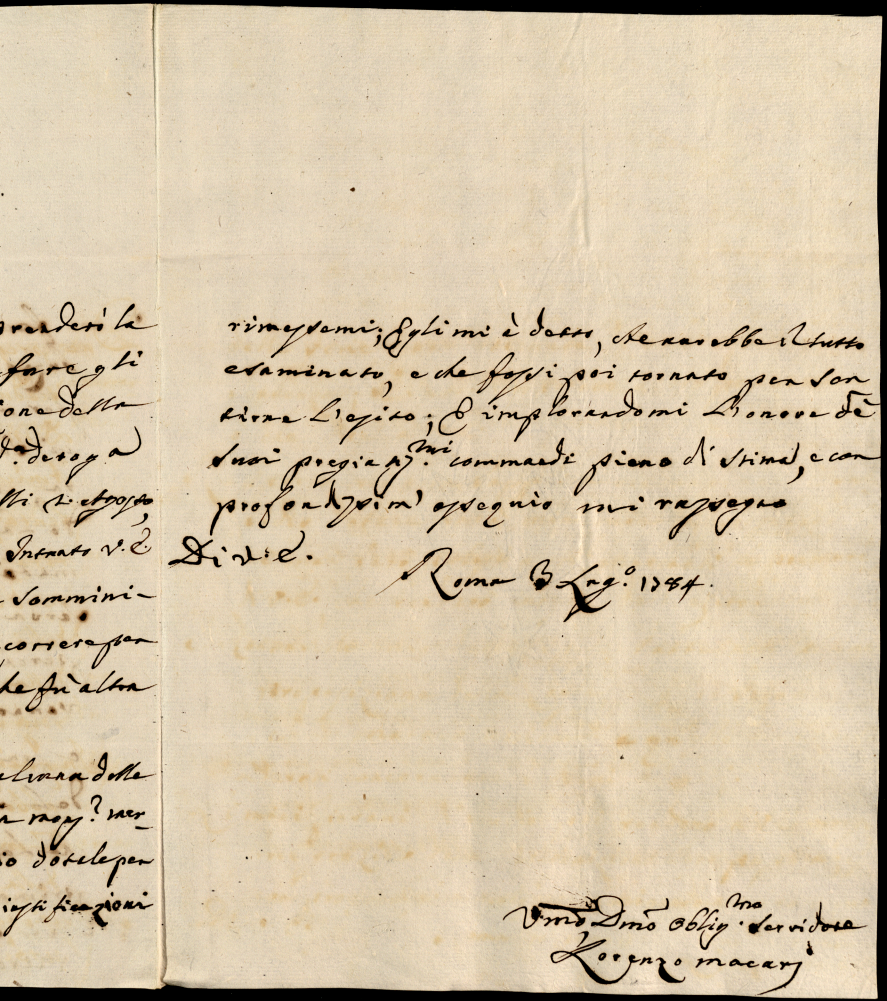 prenderò la
fare gli
ione della
d.ª deroga
Intrato V. E.
sommini-
correre per
che fù altra
delle
mag.r mer-
io dotale per
iustificazioni
rimessemi; Egli mi à detto, che narebbe il tutto
esaminato, e che fossi poi tornato per sen
tirne l'esito; E implorandomi l'onore dè
suoi pregiatis.mi commandi pieno di stima, e con
profondissim' ossequio mi rassegno
Di V. E.
Roma 3 Lug.o 1784.
Vmõ Dmõ Oblig.mo Servidore
Lorenzo Macarj